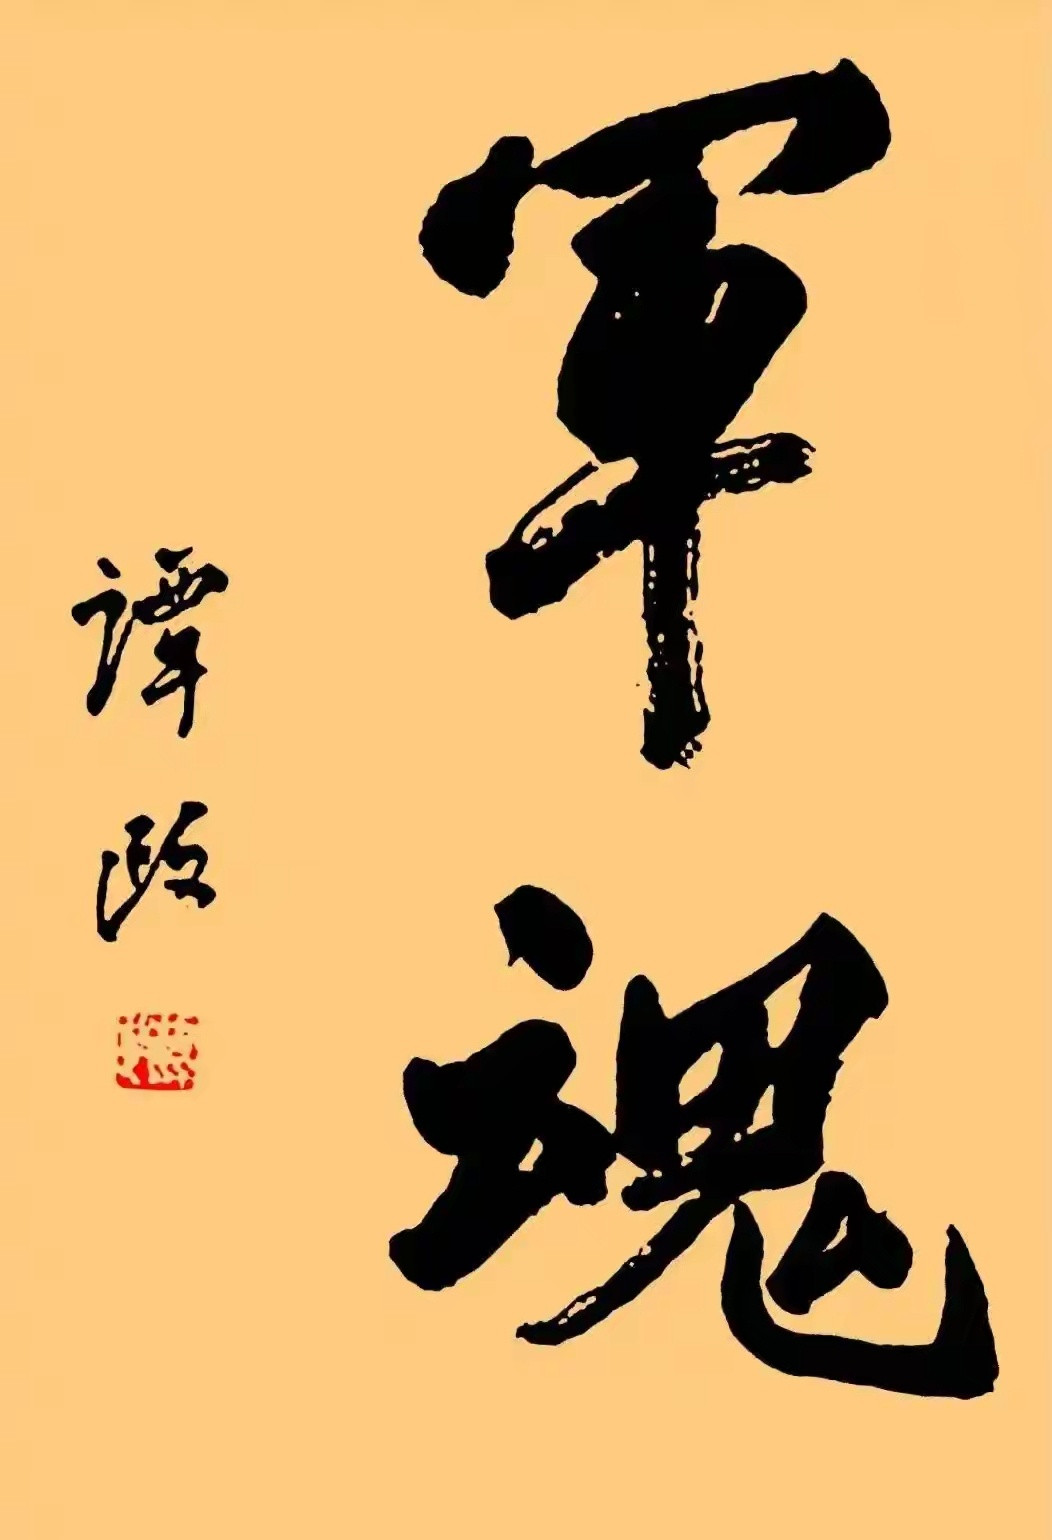 軍魂
譚政